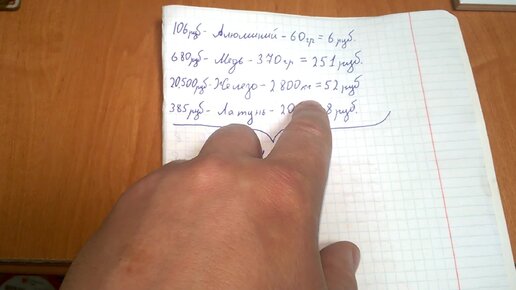 106 руб - Алюминий - 60 гр = 6 руб.
680 руб - Медь - 370 гр = 251 руб.
20,500 руб - Железо - 2 800 = 52 руб
385 руб - Латунь - 20 8 руб.